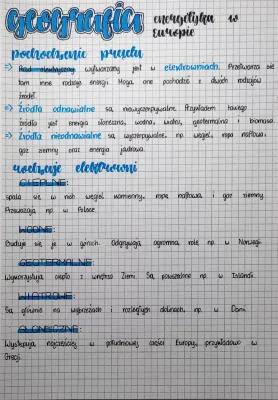 Geografia energetyka w
Europie
pochodzenie prądu
⇒ Prąd elektryczny wytwarzany jest w elektrowniach. Przetwarza się
tam inne rodzaje energii. Mogą one pochodzić z dwóch rodzajów
źródeł.
⇒ Źródła odnawialne są niewyczerpywalne. Przykładem takiego
źródła jest energia słoneczna, wodna, wiatru, geotermalna i biomasa.
⇒ Źródła nieodnawialne są wyczerpywalne. np. węgiel, ropa naftowa,
gaz ziemny oraz energia jądrowa.
rodzaje elektrowni
CIEPLNE:
spala się w nich węgiel kamienny, ropa naftowa i gaz ziemny.
Przeważają np. w Polsce.
WODNE:
Buduje się je w górach. Odgrywają ogromną rolę np. w Norwegii.
GEOTERMALNE:
Wykorzystują ciepło z wnętrza Ziemi. Są powszechne np. w Islandii.
WIATROWE:
Są głównie na wybrzeżach i rozległych dolinach, np. w Danii.
SŁONECZNE:
Występują najczęściej w południowej części Europy, przykładowo w
Grecji.